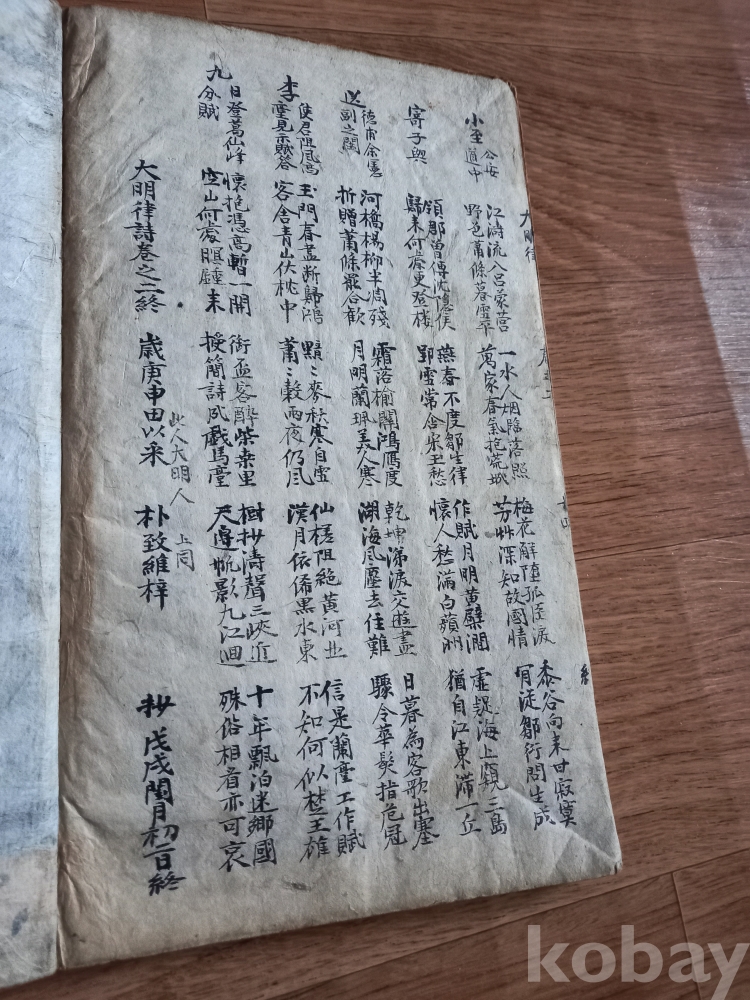 小至 公安道中
江潯流入呂蒙營
野色蕭條暮雪平
一水人烟臨落照
萬家春氣抱荒城
梅花解墮孤臣淚
芳艸深知故國情
黍谷向來甘寂寞
肯從鄒衍問生成
寄子與
領郡曾傳沈隱侯
歸來何處更登樓
燕春不度鄒生律
郢雪常含宋玉愁
作賦月明黃蘗澗
懷人愁滿白蘋洲
虛疑海上窺三島
猶自江東滯一丘
送德甫余憲副之閩
河橋楊柳半凋殘
折贈蕭條罷合歡
霜落榆關鴻鴈度
月明蘭珮美人寒
乾坤涕淚交遊盡
湖海風塵去住難
日暮為客歌出塞
驟令華髮指危冠
李使君阻風高堂見示賦答
玉門春盡斷歸鴻
客舍青山伏枕中
黯〻麥秋寒自雪
蕭〻穀雨夜仍風
仙槎阻絕黃河北
漢月依俙黑水東
信是蘭臺工作賦
不知何似楚王雄
九日登葛仙峰分賦
懷抱馮高暫一開
空山何處瞑鍾来
銜盃客醉柴桑里
授簡詩成戲馬臺
樹抄濤聲三峽近
尺邊帆影九江廻
十年飄泊迷鄉國
殊俗相看亦可哀
大明律詩卷之二終 歲庚申由以来 朴致維梓 抄 戊戌閏月初一日終
此人大明人 上同
大明律
kobay